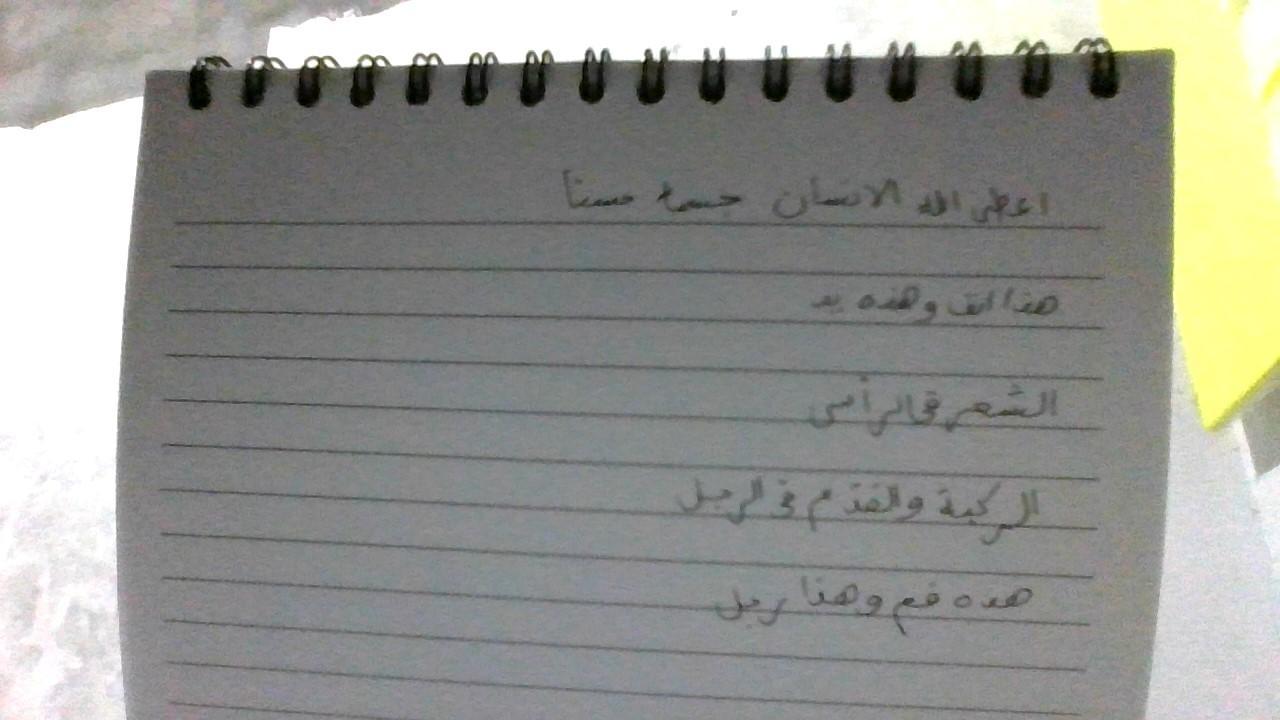 اعطى الله الانسان جسما حسنا
هذا انف وهذه يد
الشعر في الرأس
الركبة والقدم في الرجل
هده فم وهذا رجل